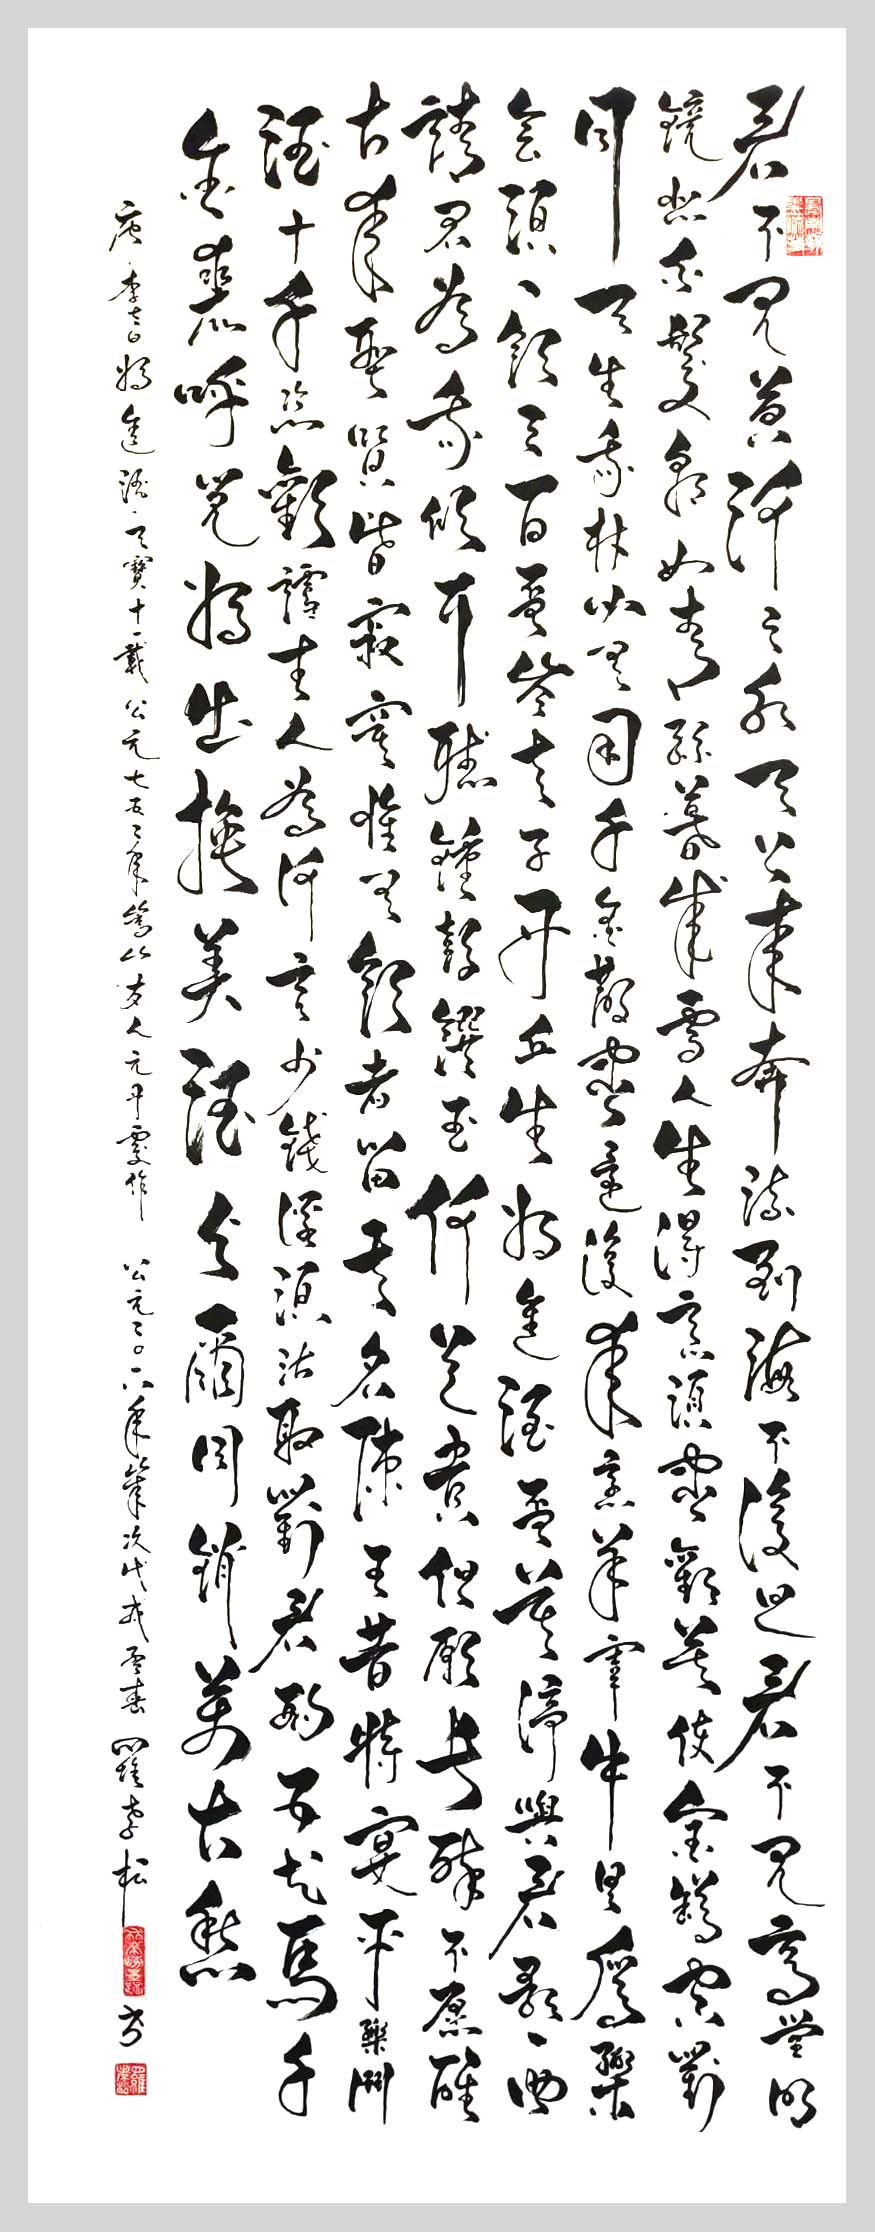 君不見黃河之水天上來奔流到海不復迴君不見高堂明
鏡悲白髮朝如青絲暮成雪人生得意須盡歡莫使金罇空對
月天生我材必有用千金散盡還復來烹羊宰牛且爲樂
會須一飲三百杯岑夫子丹丘生將進酒杯莫停與君歌一曲
請君為我傾耳聽鐘鼓饌玉何足貴但願長醉不願醒
古來聖賢皆寂寞惟有飲者留其名陳王昔時宴平樂鬥
酒十千恣歡謔主人為何言少錢徑須沽取對君酌五花馬千
金裘呼兒將出換美酒與爾同銷萬古愁
唐李白將進酒天寶十一載公元七五二年 人元丹 作 公元二〇一六年 羅孝松書